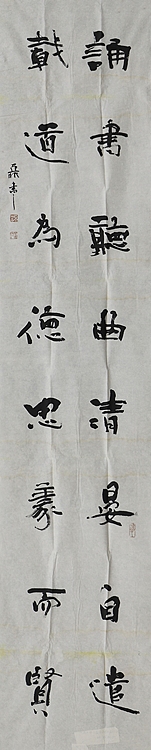 誦書聽曲清晏自遣
戴道為德忠義而賢